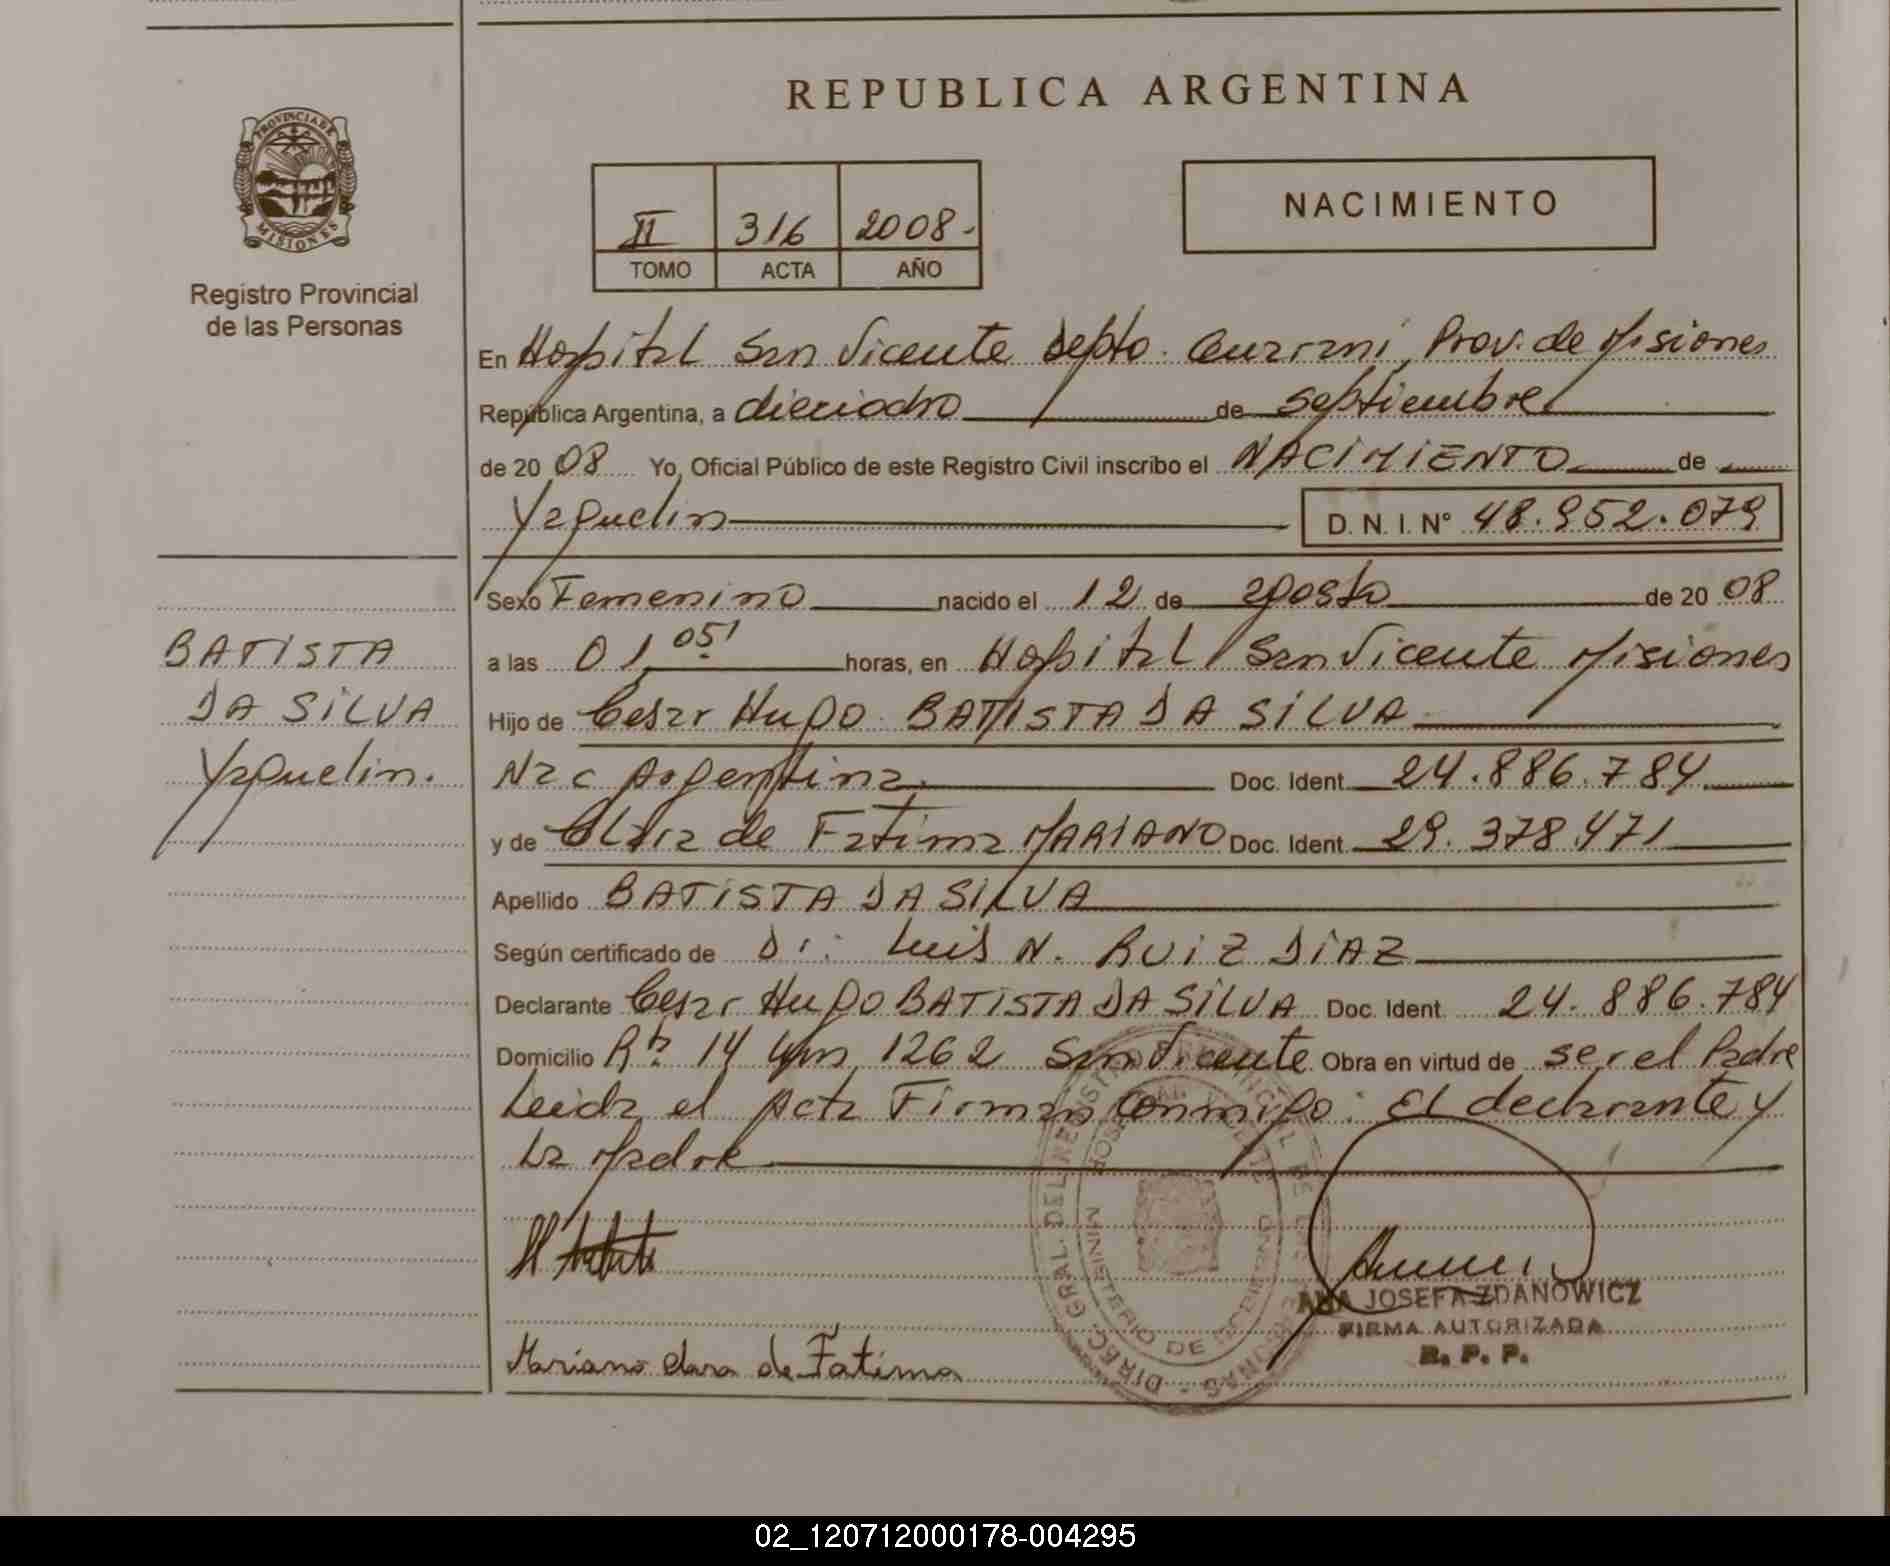 REPUBLICA ARGENTINA
PROVINCIA DE
MISIONES
Registro Provincial
de las Personas
II 316 2008.-
TOMO ACTA AÑO
NACIMIENTO
En Hospital San Vicente depto. Guarani, Prov. de Misiones
República Argentina, a dieciocho de septiembre
de 2008 Yo, Oficial Público de este Registro Civil inscribo el NACIMIENTO de
Yaquelin D. N. I. N° 48.952.079
Sexo Femenino nacido el 12 de agosto de 2008
a las 01,05' horas, en Hospital San Vicente Misiones
Hijo de Cesar Hugo BATISTA DA SILVA
Nac Argentina Doc. Ident. 24.886.784
y de Clara de Fatima MARIANO Doc. Ident. 29.378.471
Apellido BATISTA DA SILVA
Según certificado de Dr: Luis N. RUIZ DIAZ
Declarante Cesar Hugo BATISTA DA SILVA Doc. Ident. 24.886.784
Domicilio Rta 14 Km 1262 San Vicente Obra en virtud de ser el Padre
Leida el Acta Firman conmigo: El declarante y
La Madre
BATISTA
DA SILVA
Yaquelin.
Mariano clara de Fatima
ANA JOSEFA ZDANOWICZ
FIRMA AUTORIZADA
R. P. P.
DIREC. GRAL. DEL
MINISTERIO DE GOBIERNO
02_120712000178-004295